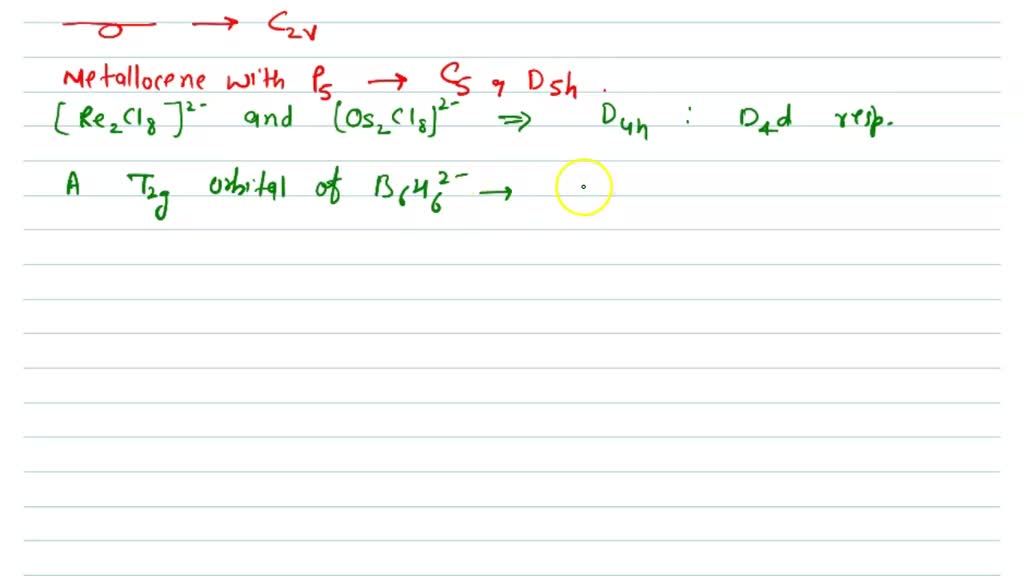 → C2v
Metallocene with P5 → C5 , D5h .
[Re2Cl8]2- and [Os2Cl8]2- ⇒ D4h : D4d resp.
A T2g orbital of B6H6 2- →